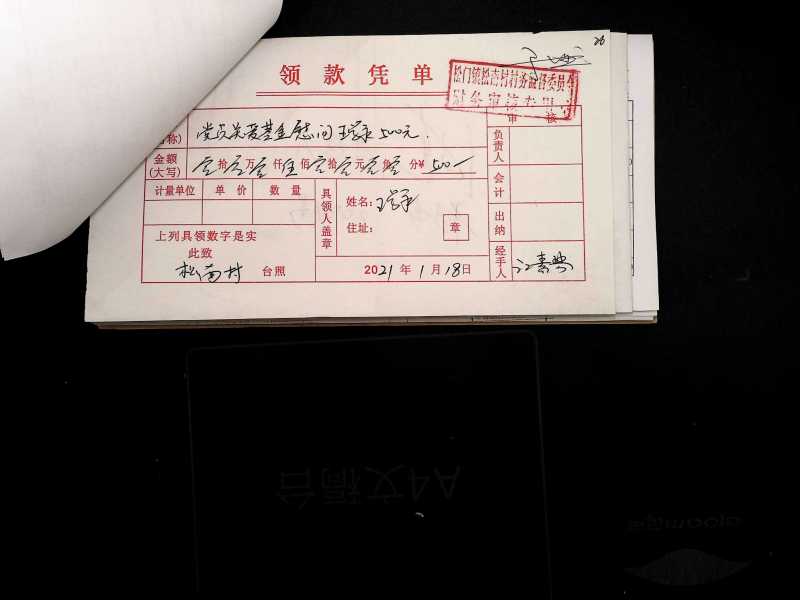 26
领款凭单
松门镇松南村村务监督委员会
财务审核专用章
审核
称)
党员关爱基金慰问 500元.
负责人
金额(大写)
零拾零万零仟伍佰零拾零元零角零分¥ 500—
会计
计量单位 单价 数量
具领人盖章
姓名:
住址:
章
出纳
上列具领数字是实
此致
松南村 台照
2021年1月18日
经手人
A4文稿台